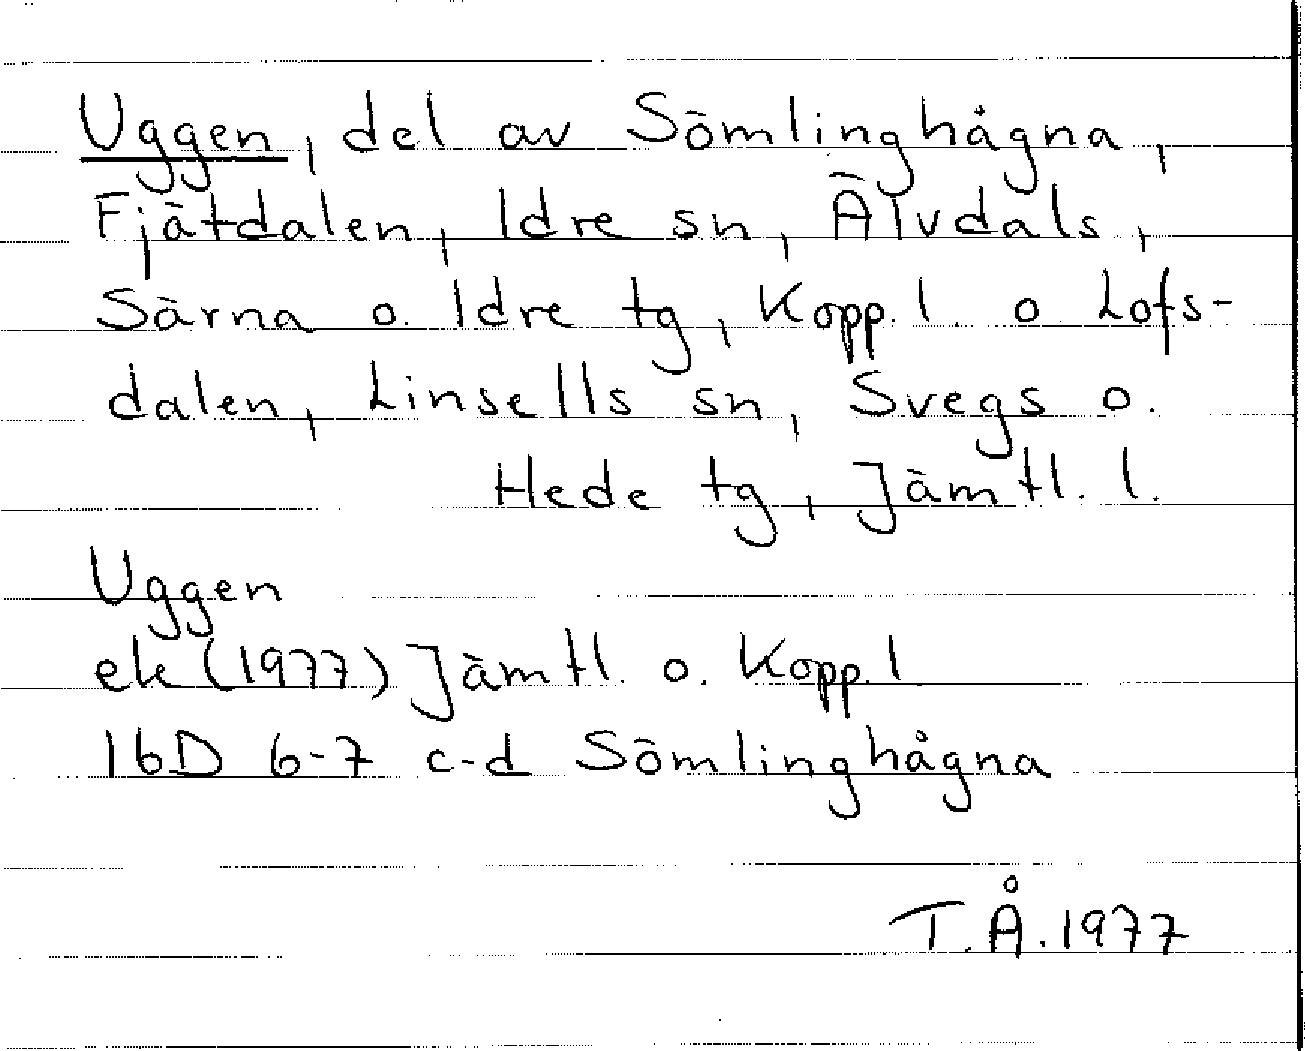 Uggen, del av Sömlinghågna,
Fjätdalen, Idre sn, Älvdals,
Särna o. Idre tg, Kopp. l. o Lofs-
dalen, Linsells sn, Svegs o.
Hede tg, Jämtl. l.
Uggen
ek (1977) Jämtl. o. Kopp. l
16D 6-7 c-d Sömlinghågna
T.Å. 1977